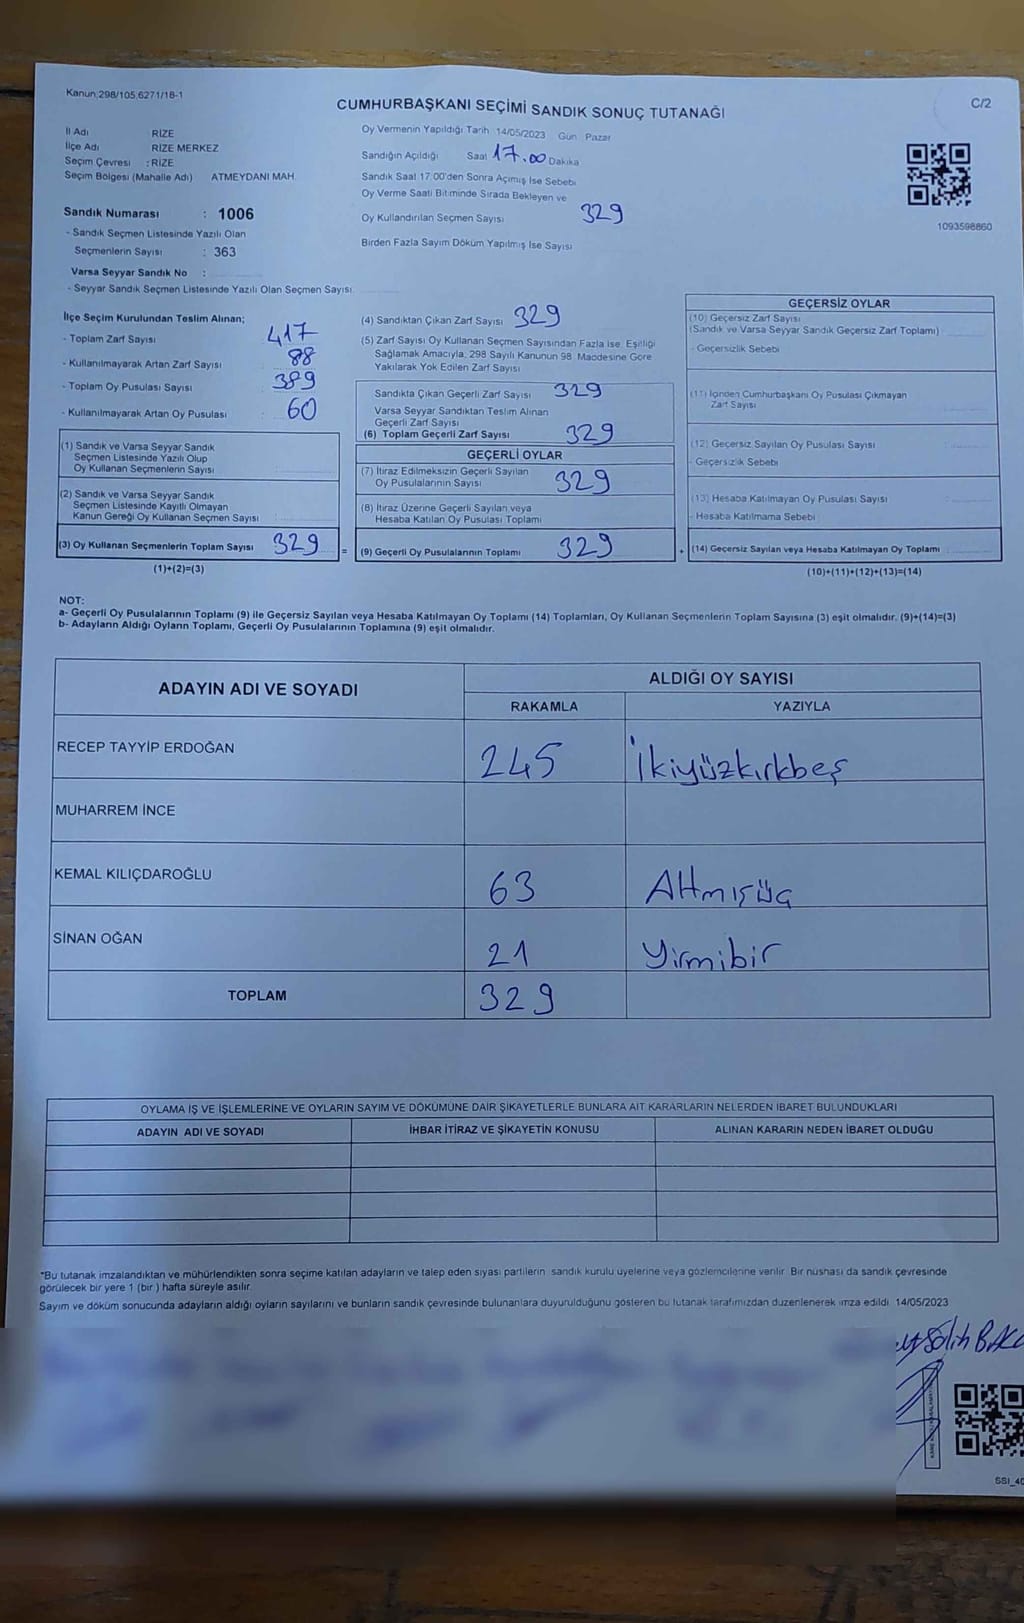 Kanun;298/105,6271/18-1
CUMHURBAŞKANI SEÇİMİ SANDIK SONUÇ TUTANAĞI
C/2
İl Adı RİZE
İlçe Adı RİZE MERKEZ
Seçim Çevresi : RİZE
Seçim Bölgesi (Mahalle Adı) ATMEYDANI MAH.
Oy Vermenin Yapıldığı Tarih 14/05/2023 Gün Pazar
Sandığın Açıldığı Saat 17.00 Dakika
Sandık Saat 17:00'den Sonra Açımış İse Sebebi
Oy Verme Saati Bitiminde Sırada Bekleyen ve
Oy Kullandırılan Seçmen Sayısı 329
Birden Fazla Sayım Döküm Yapılmış İse Sayısı
1093598860
Sandık Numarası : 1006
- Sandık Seçmen Listesinde Yazılı Olan
Seçmenlerin Sayısı : 363
Varsa Seyyar Sandık No :
- Seyyar Sandık Seçmen Listesinde Yazılı Olan Seçmen Sayısı
İlçe Seçim Kurulundan Teslim Alınan;
- Toplam Zarf Sayısı 417
- Kullanılmayarak Artan Zarf Sayısı 88
- Toplam Oy Pusulası Sayısı 389
- Kullanılmayarak Artan Oy Pusulası 60
(1) Sandık ve Varsa Seyyar Sandık
Seçmen Listesinde Yazılı Olup
Oy Kullanan Seçmenlerin Sayısı
(2) Sandık ve Varsa Seyyar Sandık
Seçmen Listesinde Kayıtlı Olmayan
Kanun Gereği Oy Kullanan Seçmen Sayısı
(3) Oy Kullanan Seçmenlerin Toplam Sayısı 329 =
(1)+(2)=(3)
(4) Sandıktan Çıkan Zarf Sayısı 329
(5) Zarf Sayısı Oy Kullanan Seçmen Sayısından Fazla İse, Eşitliği
Sağlamak Amacıyla, 298 Sayılı Kanunun 98. Maddesine Göre
Yakılarak Yok Edilen Zarf Sayısı
Sandıkta Çıkan Geçerli Zarf Sayısı 329
Varsa Seyyar Sandıktan Teslim Alınan
Geçerli Zarf Sayısı
(6) Toplam Geçerli Zarf Sayısı 329
GEÇERLİ OYLAR
(7) İtiraz Edilmeksizin Geçerli Sayılan
Oy Pusulalarının Sayısı 329
(8) İtiraz Üzerine Geçerli Sayılan veya
Hesaba Katılan Oy Pusulası Toplamı
(9) Geçerli Oy Pusulalarının Toplamı 329 +
GEÇERSİZ OYLAR
(10) Geçersiz Zarf Sayısı
(Sandık ve Varsa Seyyar Sandık Geçersiz Zarf Toplamı)
- Geçersizlik Sebebi
(11) İçinden Cumhurbaşkanı Oy Pusulası Çıkmayan
Zarf Sayısı
(12) Geçersiz Sayılan Oy Pusulası Sayısı
- Geçersizlik Sebebi
(13) Hesaba Katılmayan Oy Pusulası Sayısı
- Hesaba Katılmama Sebebi
(14) Geçersiz Sayılan veya Hesaba Katılmayan Oy Toplamı
(10)+(11)+(12)+(13)=(14)
NOT:
a- Geçerli Oy Pusulalarının Toplamı (9) ile Geçersiz Sayılan veya Hesaba Katılmayan Oy Toplamı (14) Toplamları, Oy Kullanan Seçmenlerin Toplam Sayısına (3) eşit olmalıdır. (9)+(14)=(3)
b- Adayların Aldığı Oyların Toplamı, Geçerli Oy Pusulalarının Toplamına (9) eşit olmalıdır.
ADAYIN ADI VE SOYADI
ALDIĞI OY SAYISI
RAKAMLA YAZIYLA
RECEP TAYYİP ERDOĞAN 245 İkiyüzkırkbeş
MUHARREM İNCE
KEMAL KILIÇDAROĞLU 63 Altmışüç
SİNAN OĞAN 21 Yirmibir
TOPLAM 329
OYLAMA İŞ VE İŞLEMLERİNE VE OYLARIN SAYIM VE DÖKÜMÜNE DAİR ŞİKAYETLERLE BUNLARA AİT KARARLARIN NELERDEN İBARET BULUNDUKLARI
ADAYIN ADI VE SOYADI İHBAR İTİRAZ VE ŞİKAYETİN KONUSU ALINAN KARARIN NEDEN İBARET OLDUĞU
*Bu tutanak imzalandıktan ve mühürlendikten sonra seçime katılan adayların ve talep eden siyasi partilerin sandık kurulu üyelerine veya gözlemcilerine verilir. Bir nüshası da sandık çevresinde
görülecek bir yere 1 (bir ) hafta süreyle asılır.
Sayım ve döküm sonucunda adayların aldığı oyların sayılarını ve bunların sandık çevresinde bulunanlara duyurulduğunu gösteren bu tutanak tarafımızdan düzenlenerek imza edildi. 14/05/2023
Salih